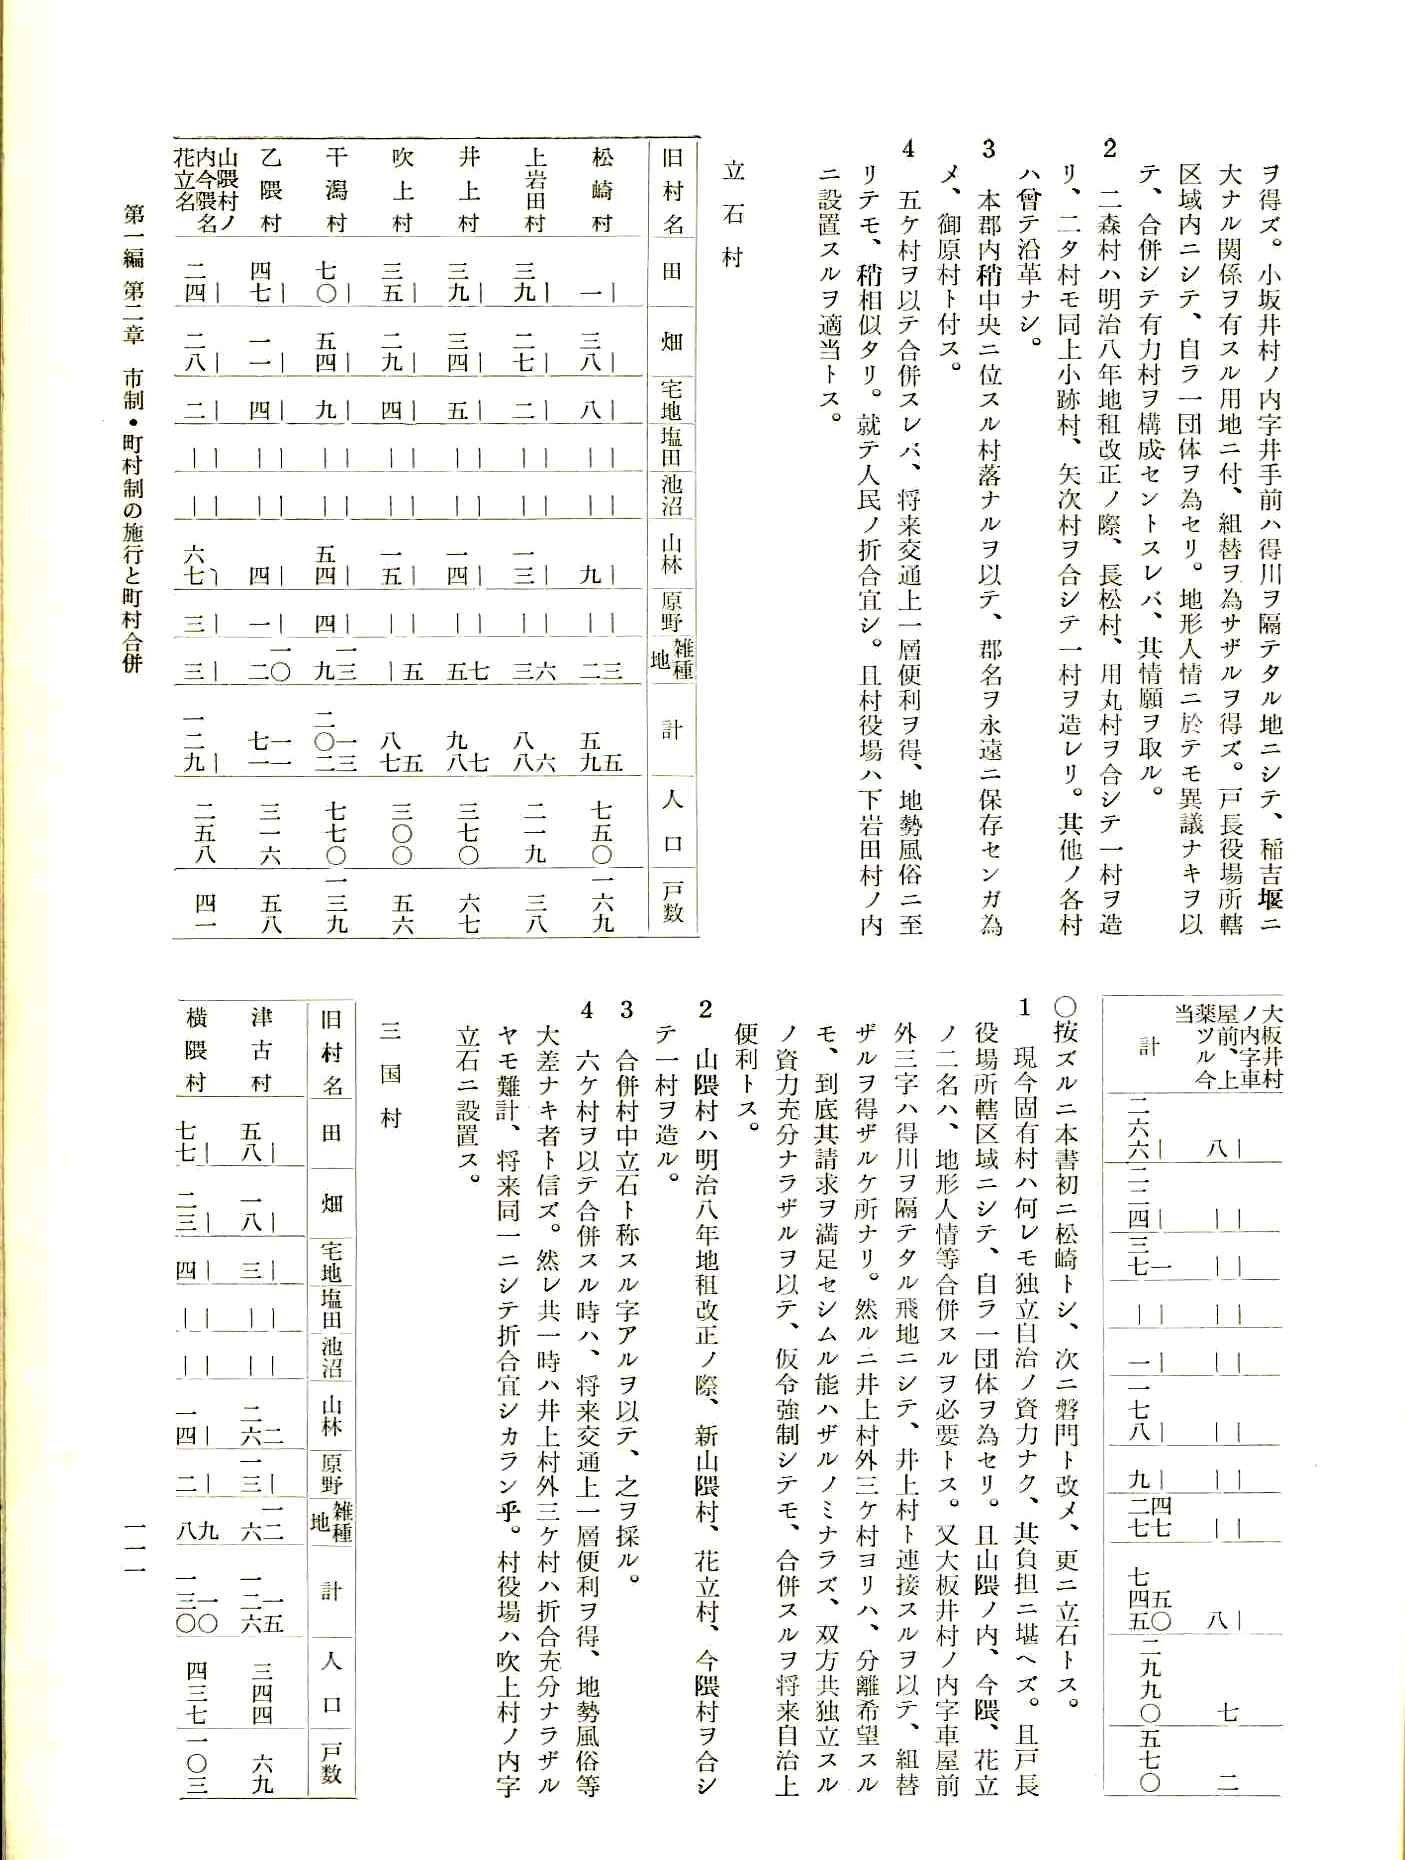 ヲ得ズ。小坂井村ノ内字井手前ハ得川ヲ隔テタル地ニシテ、稲吉堰ニ
大ナル関係ヲ有スル用地ニ付、組替ヲ為サザルヲ得ズ。戸長役場所轄
区域内ニシテ、自ラ一団体ヲ為セリ。地形人情ニ於テモ異議ナキヲ以
テ、合併シテ有力村ヲ構成セントスレバ、其情願ヲ取ル。
2　二森村ハ明治八年地租改正ノ際、長松村、用丸村ヲ合シテ一村ヲ造
リ、二タ村モ同上小跡村、矢次村ヲ合シテ一村ヲ造レリ。其他ノ各村
ハ曾テ沿革ナシ。
3　本郡内稍中央ニ位スル村落ナルヲ以テ、郡名ヲ永遠ニ保存センガ為
メ、御原村ト付ス。
4　五ケ村ヲ以テ合併スレバ、将来交通上一層便利ヲ得、地勢風俗ニ至
リテモ、稍相似タリ。就テ人民ノ折合宜シ。且村役場ハ下岩田村ノ内
ニ設置スルヲ適当トス。
立石村
旧村名　田　畑　宅地　塩田　池沼　山林　原野　雑種地　計　人口　戸数
松崎村　一|　三八|　八|　||　||　九|　||　二三　五九五　七五〇　一六九
上岩田村　三九|　二七|　二|　||　||　一三|　||　三六　八八六　二一九　三八
井上村　三九|　三四|　五|　||　||　一四|　||　五七　九八七　三七〇　六七
吹上村　三五|　二九|　四|　||　||　一五|　||　|五　八七五　三〇〇　五六
干潟村　七〇|　五四|　九|　||　||　五四|　四|　九一三　二〇二一三　七七〇　一三九
乙隈村　四七|　一一|　四|　||　||　四|　一|　二一〇　七一一一　三一六　五八
山隈村ノ内今隈名花立名　二四|　二八|　二|　||　||　六七|　三|　三|　一二九|　二五八　四一
大板井村ノ内字車屋前、上薬ツル今当　八|　||　||　||　||　||　||　||　八|　七　二
計　二六六|　二二四|　三七一　||　一|　一七八|　九|　二七四七　七四五五〇　二九九〇　五七〇
〇按ズルニ本書初ニ松崎トシ、次ニ磐門ト改メ、更ニ立石トス。
1　現今固有村ハ何レモ独立自治ノ資力ナク、其負担ニ堪ヘズ。且戸長
役場所轄区域ニシテ、自ラ一団体ヲ為セリ。且山隈ノ内、今隈、花立
ノ二名ハ、地形人情等合併スルヲ必要トス。又大板井村ノ内字車屋前
外三字ハ得川ヲ隔テタル飛地ニシテ、井上村ト連接スルヲ以テ、組替
ザルヲ得ザルケ所ナリ。然ルニ井上村外三ケ村ヨリハ、分離希望スル
モ、到底其請求ヲ満足セシムル能ハザルノミナラズ、双方共独立スル
ノ資力充分ナラザルヲ以テ、仮令強制シテモ、合併スルヲ将来自治上
便利トス。
2　山隈村ハ明治八年地租改正ノ際、新山隈村、花立村、今隈村ヲ合シ
テ一村ヲ造ル。
3　合併村中立石ト称スル字アルヲ以テ、之ヲ採ル。
4　六ケ村ヲ以テ合併スル時ハ、将来交通上一層便利ヲ得、地勢風俗等
大差ナキ者ト信ズ。然レ共一時ハ井上村外三ケ村ハ折合充分ナラザル
ヤモ難計、将来同一ニシテ折合宜シカラン乎。村役場ハ吹上村ノ内字
立石ニ設置ス。
三国村
旧村名　田　畑　宅地　塩田　池沼　山林　原野　雑種地　計　人口　戸数
津古村　五八|　一八|　三|　||　||　二六二　一三|　六一二　一二六一五　三四四　六九
横隈村　七七|　二三|　四|　||　||　一四|　二|　八九　一三〇一〇　四三七　一〇三
第一編　第二章　市制・町村制の施行と町村合併
一一一